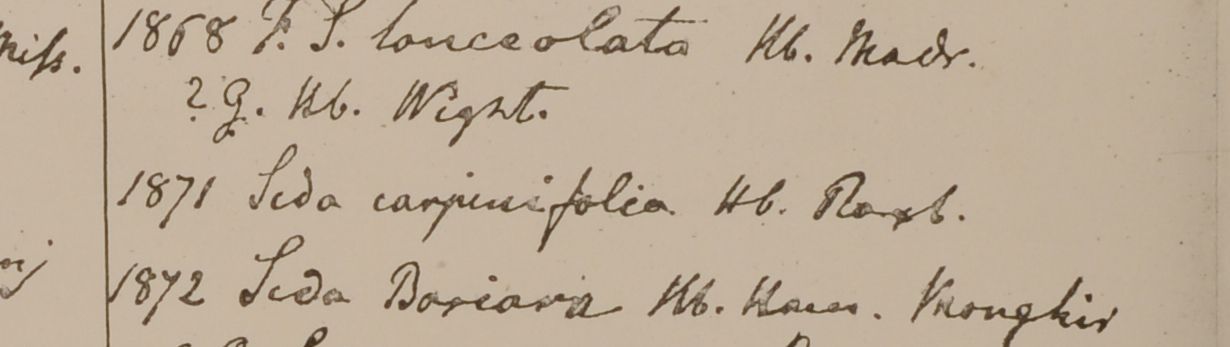 miss. 1868 F. S. lanceolata Hb. Madr.
? G. Hb. Wight.
1871 Sida carpinifolia Hb. Roxb.
1872 Sida Bariara Hb. Ham. Monghir